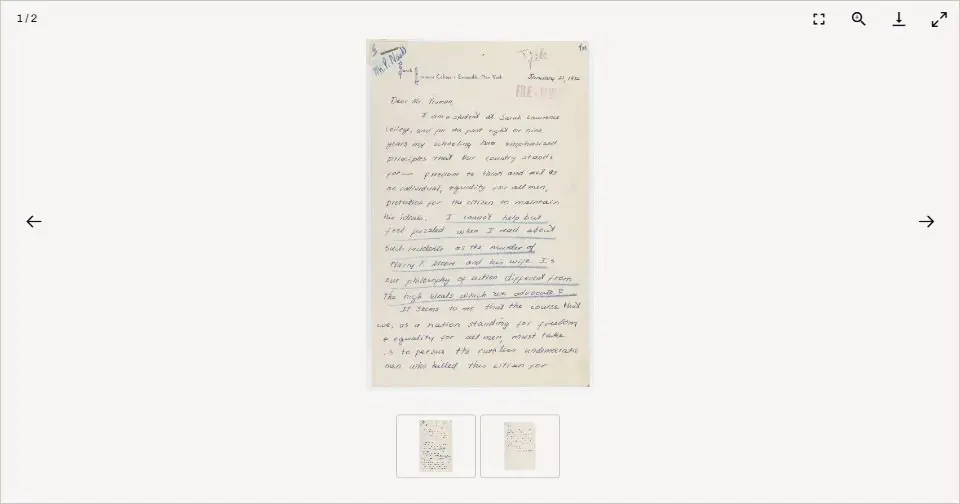 1 / 2
Mr. P. Nash
Tyde
Sarah Lawrence College · Bronxville, New York
January 21, 1952
FILE
Dear Mr. Truman,
I am a student at Sarah Lawrence
College, and for the past eight or nine
years my schooling has emphasized
principles that our country stands
for — freedom to think and act as
an individual, equality for all men,
protection for the citizen to maintain
his ideals. I cannot help but
feel puzzled when I read about
such incidents as the murder of
Harry T. Moore and his wife. Is
our philosophy of action different from
the high ideals which we advocate?
It seems to me that the course that
we, as a nation standing for freedom
+ equality for all men, must take
is to pursue the ruthless undemocratic
men who killed this citizen for